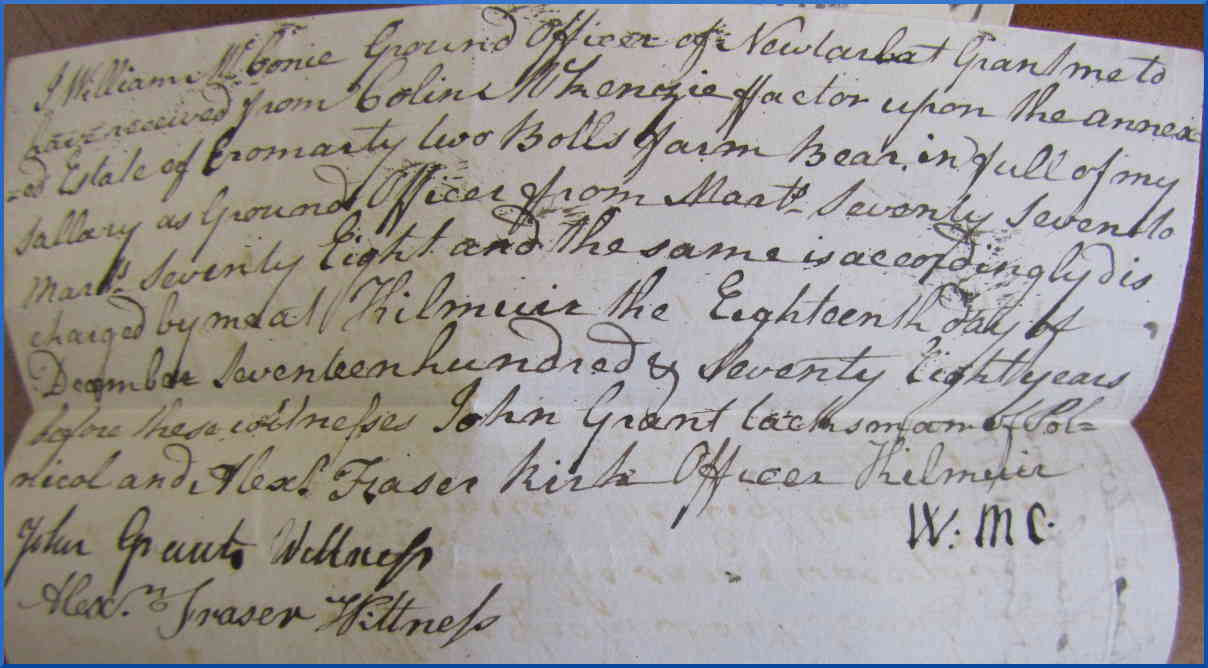 I William McConie Ground Officer of Newtarbat Grant me to
have received from Colin McKenzie ffactor upon the annex
=ed Estate of Cromarty two Bolls farm Bear in full of my
sallary as Ground Officer from Marts. Seventy Seven to
Marts. Seventy Eight and the same is accordingly dis
charged by me at Kilmuir the Eighteenth day of
December Seventeen hundred & Seventy Eight years
before these witnesses John Grant tacksman of Pol=
nicol and Alexr. Fraser Kirk Officer Kilmuir
W: MC:
John Grant Wittness
Alexr. Fraser Wittness